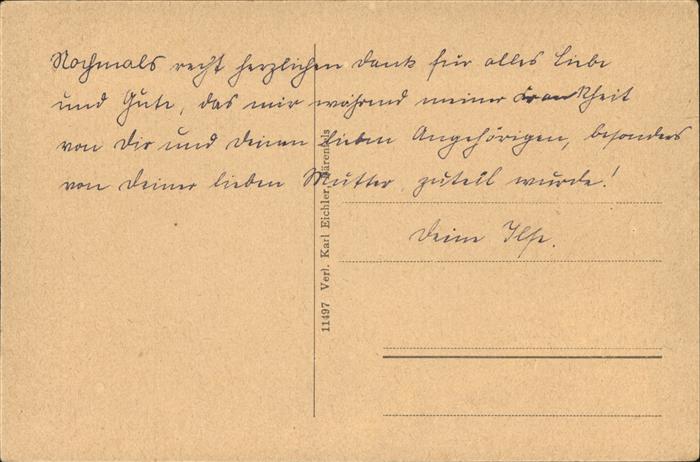 Nochmals recht herzlichen Dank für alles Liebe
und Gute, das mir während meiner Krankheit
von Dir und Deinen lieben Angehörigen, besonders
von Deiner lieben Mutter, zuteil wurde!
Deine Ilse.
11497 Verl. Karl Eichler, Bärenfels